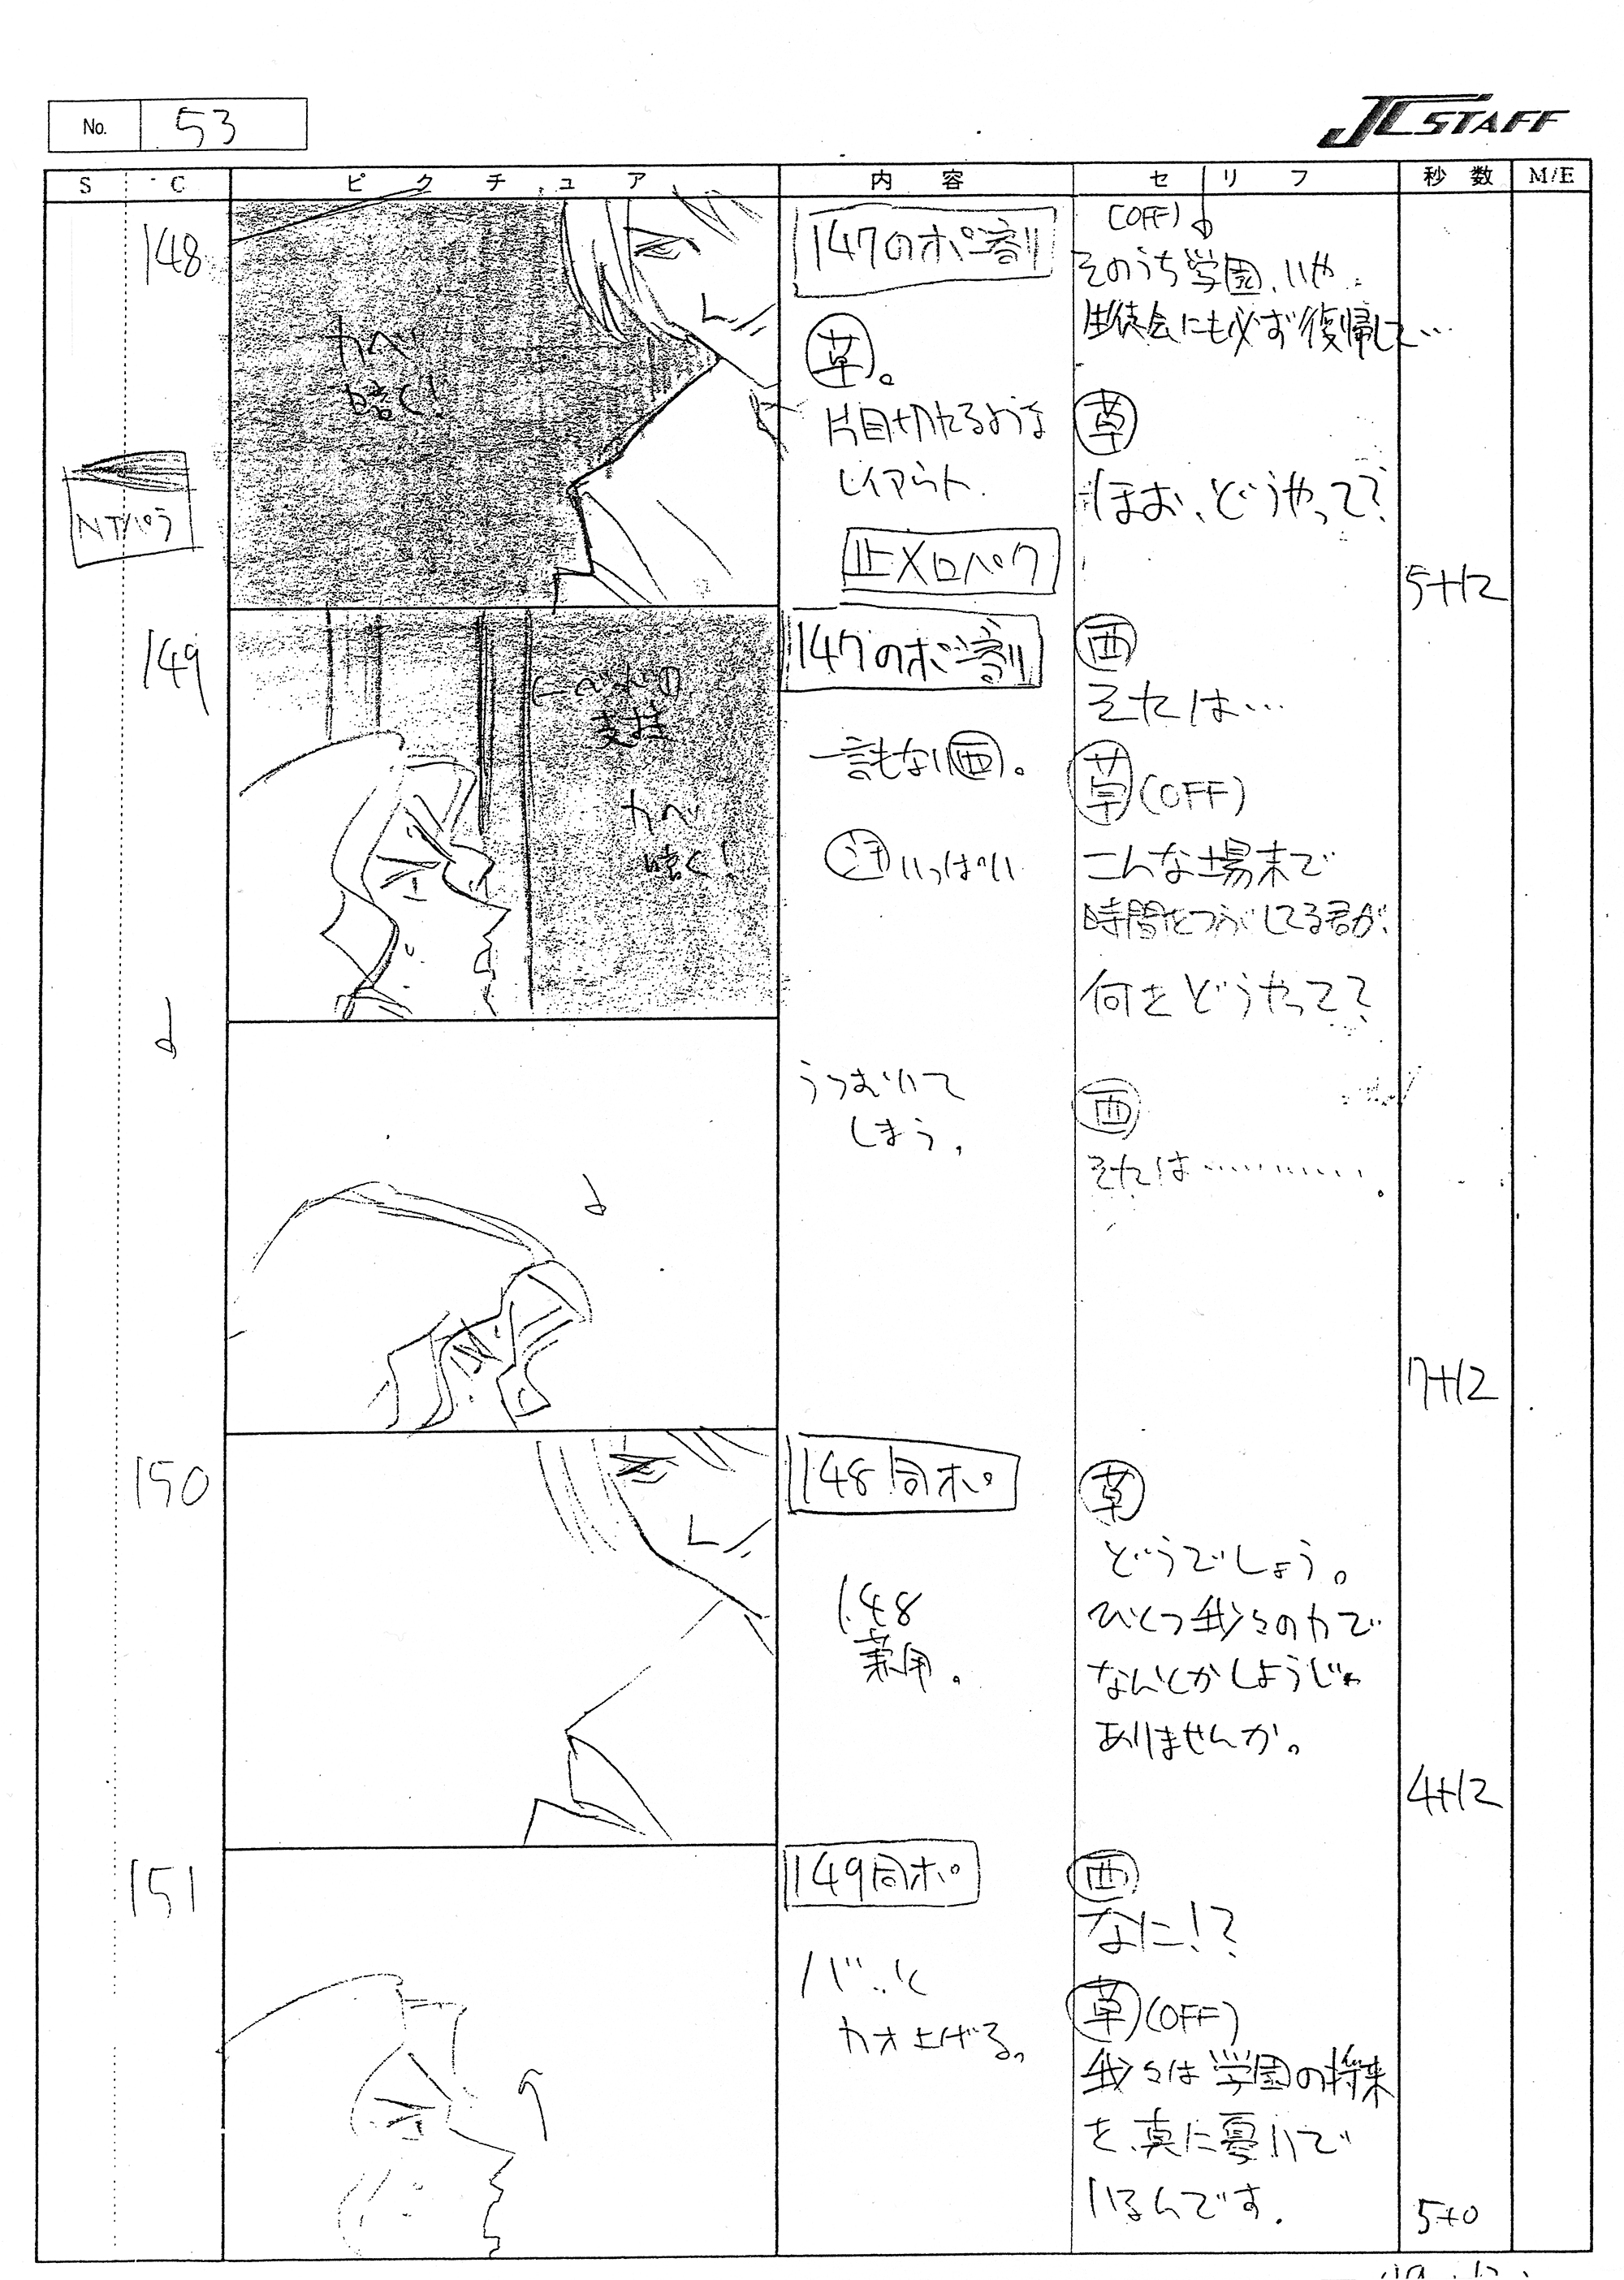 No. 53
JC STAFF
S C ピクチュア 内容 セリフ 秒数 M/E
148
カベ
暗く!
NTパラ
147のポジ割
草。
片目切れるような
レイアウト.
止メ口パク
(OFF)
そのうち学園、いや、
生徒会にも必ず復帰して…
草
ほお、どうやって?
5+12
149
ベッドの
支柱
カベ
暗く!
147のポジ割
一言もない西。
いっぱい
西
それは…
草(OFF)
こんな場末で
時間をつぶしてる君が、
何をどうやって?
うつむいて
しまう。
西
それは…………。
7+12
150
148同ポ
148
兼用。
草
どうでしょう。
ひとつ我々の力で
なんとかしようじゃ
ありませんか。
4+12
151
149同ポ
バッと
カオ上げる。
西
なに!?
草(OFF)
我々は学園の将来
を、真に憂いで
いるんです.
5+0